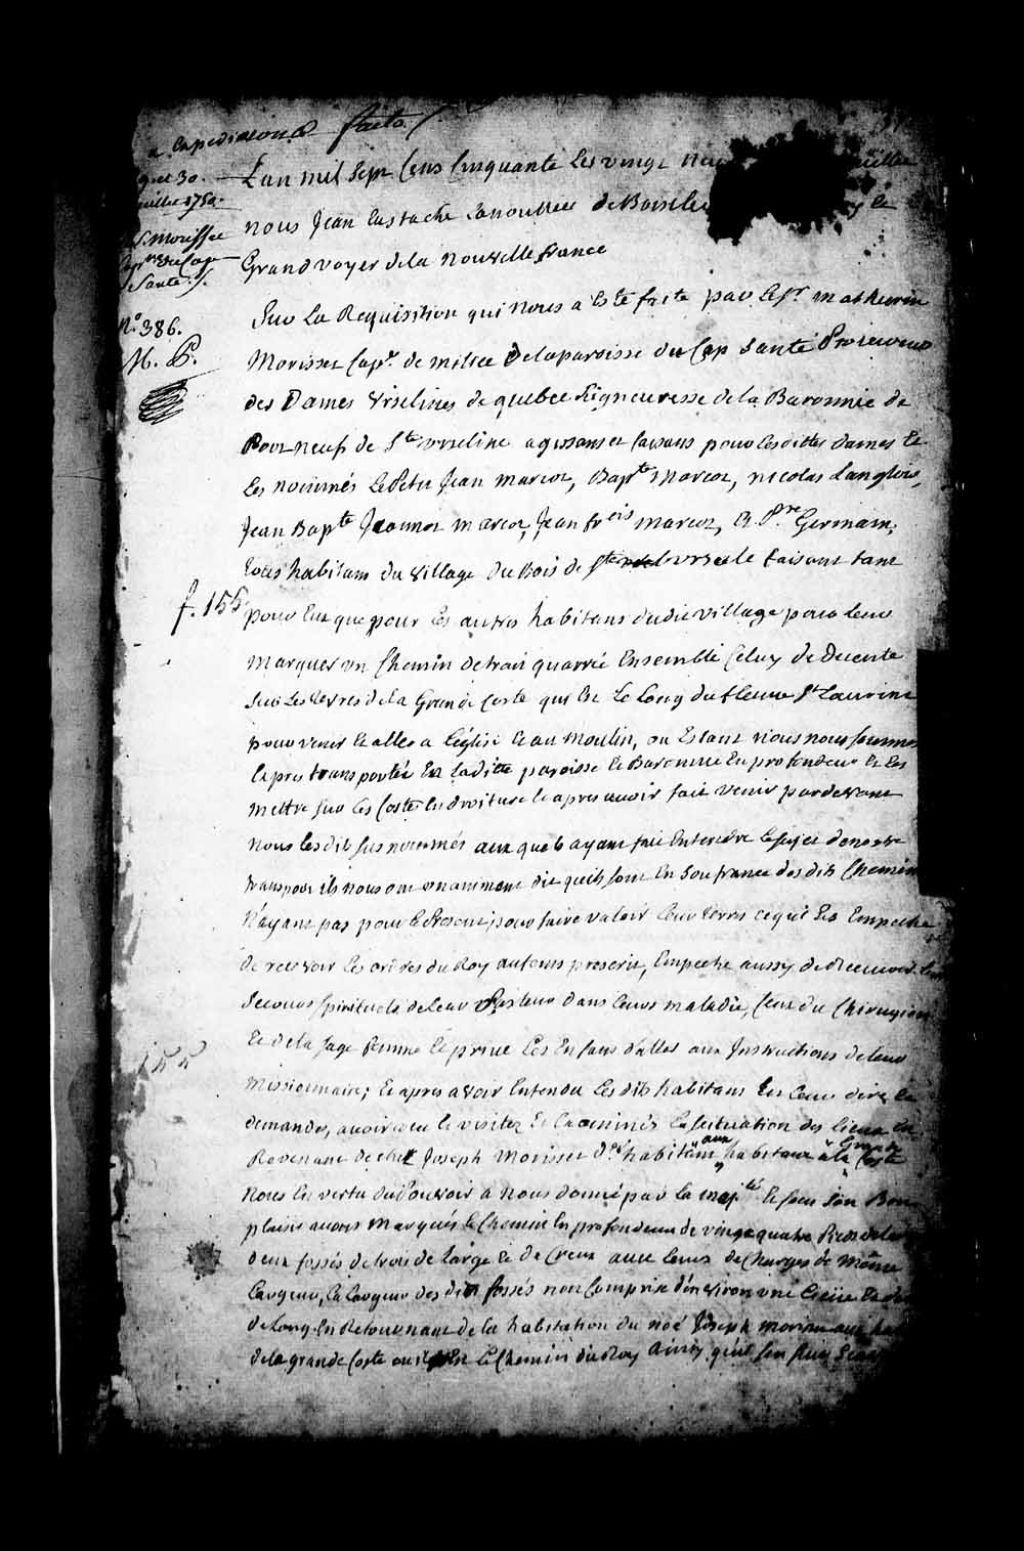 a Expedition faite
et 30.
juillet 1750.
Morisset
du Cap
Santé
No. 386.
M. P.
L'an mil Sept Cens Cinquante Les vingt neuf juillet
nous Jean Eustache Lanoullier de Boiscler
Grand voyer de la nouvelle france
Sur La Requisition qui nous a Esté faite par Le Sr. mathurin
Morisset Capne. de milice de la paroisse du Cap Santé Procureur
des Dames Urselines de quebec Seigneuresse de la Baronnie de
Port neuf de Ste. Urseline agissans et faisans pour Lesdittes dames Et
Les nommés Le Petit Jean marcot, Bapte. Marcot, nicolas Langlois,
Jean Bapte. Jeannot marcot, Jean frcois marcot, Et Pre. Germain,
tous habitans du village du Bois de Ste. Ursule faisant tant
f. 155
pour Eux que pour Les autres habitans dudit village pour leur
marquer un Chemin de trait quarré Ensemble Celuy de Decente
Sur Les terres de la Grande Coste qui Est Le Long du fleuve St. Laurent
pour venir Et aller a L'église Et au moulin, ou Estant nous nous sommes
Expres transportés En Laditte paroisse Et Baronnie En profondeur Et Les
mettre Sur Les Costé En droiture Et apres avoir fait venir pardevant
nous Lesdits Sus nommés auxquels ayant fait Entendre Le Sujet de nostre
transport ils nous ont unaniment dit qu'ils sont En Soufrance des dits Chemins
N'ayant pas pour Le Present pour faire valoir Leur terres ce qui Les Empeche
de recevoir Les ordres du Roy au tems prescrit, Empeche aussy de Recevoir Les
Secours Spirituels de Leur Pasteur dans Leurs maladie, Ceux du Chirugien
155
Et de la Sage femme Et prive Les Enfans d'aller aux Instructions de Leur
Missionnaire; Et apres avoir Entendu Les dits habitans En Leur dire Et
demandes, avoir veu Et visitez Et Examinés La Scituation des Lieux En
Revenant de chez Joseph Morisset dt. habitant aux habitans a la Grande Coste
Nous En vertu du Pouvoir a Nous donné par Sa majté. Et Sous Son Bon
plaisir avons Marqués Le Chemin En profondeur de vingt quatre Pieds de large
deux fossés de trois de large Et de Creux avec Leurs deCharges de Même
Largeur, La Largeur des dits fossés non Compris d'environ une Lieüe Et demi
de Long En Retournant de la habitation du noé Joseph morisset aux
de la grande Coste ou est Le Chemin du Roy Ainsy qu'il Sera Suivy